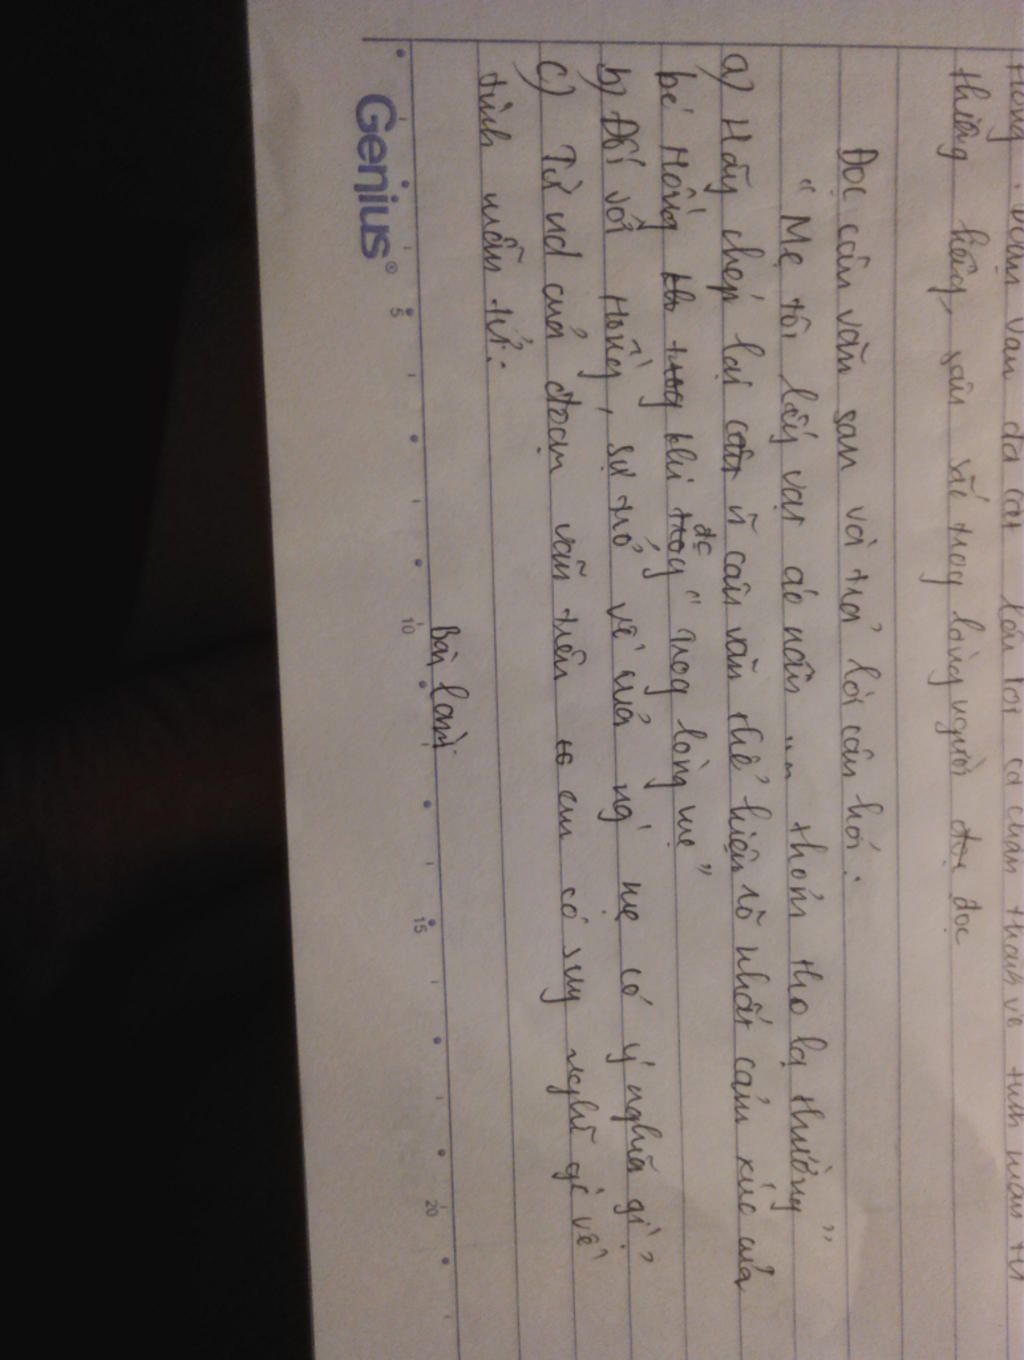 thiêng liêng, sâu sắc trog lòng người đọc
Đọc câu văn sau và trả lời câu hỏi:
"Mẹ tôi lấy vạt áo nâu ... thơm tho lạ thường"
a) Hãy chép lại ~ câu văn thể hiện rõ nhất cảm xúc của
bé Hồng khi đc "trog lòng mẹ"
b) Đối với Hồng, sự trở về của ng' mẹ có ý nghĩa gì?
c) Từ nd của đoạn văn trên em có suy nghĩ gì về
tình mẫu tử.
Bài làm
Genius®
5 10 15 20